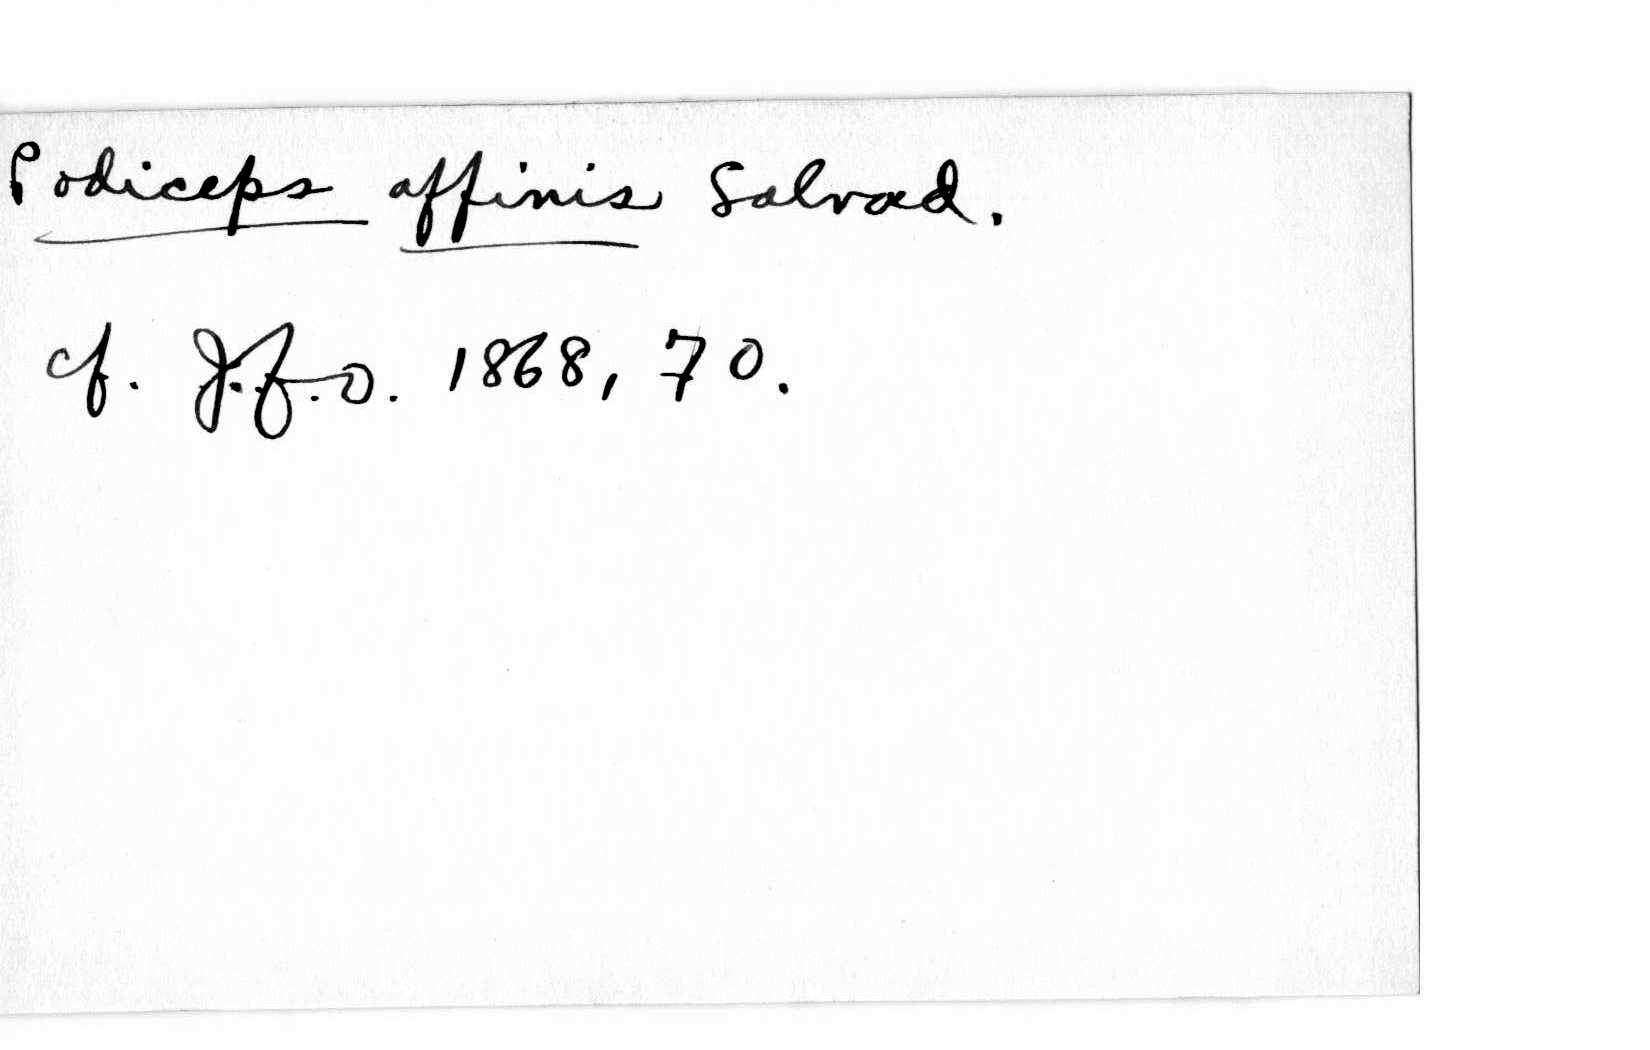 Podiceps affinis Salvad.
cf. J.f.O. 1868, 70.